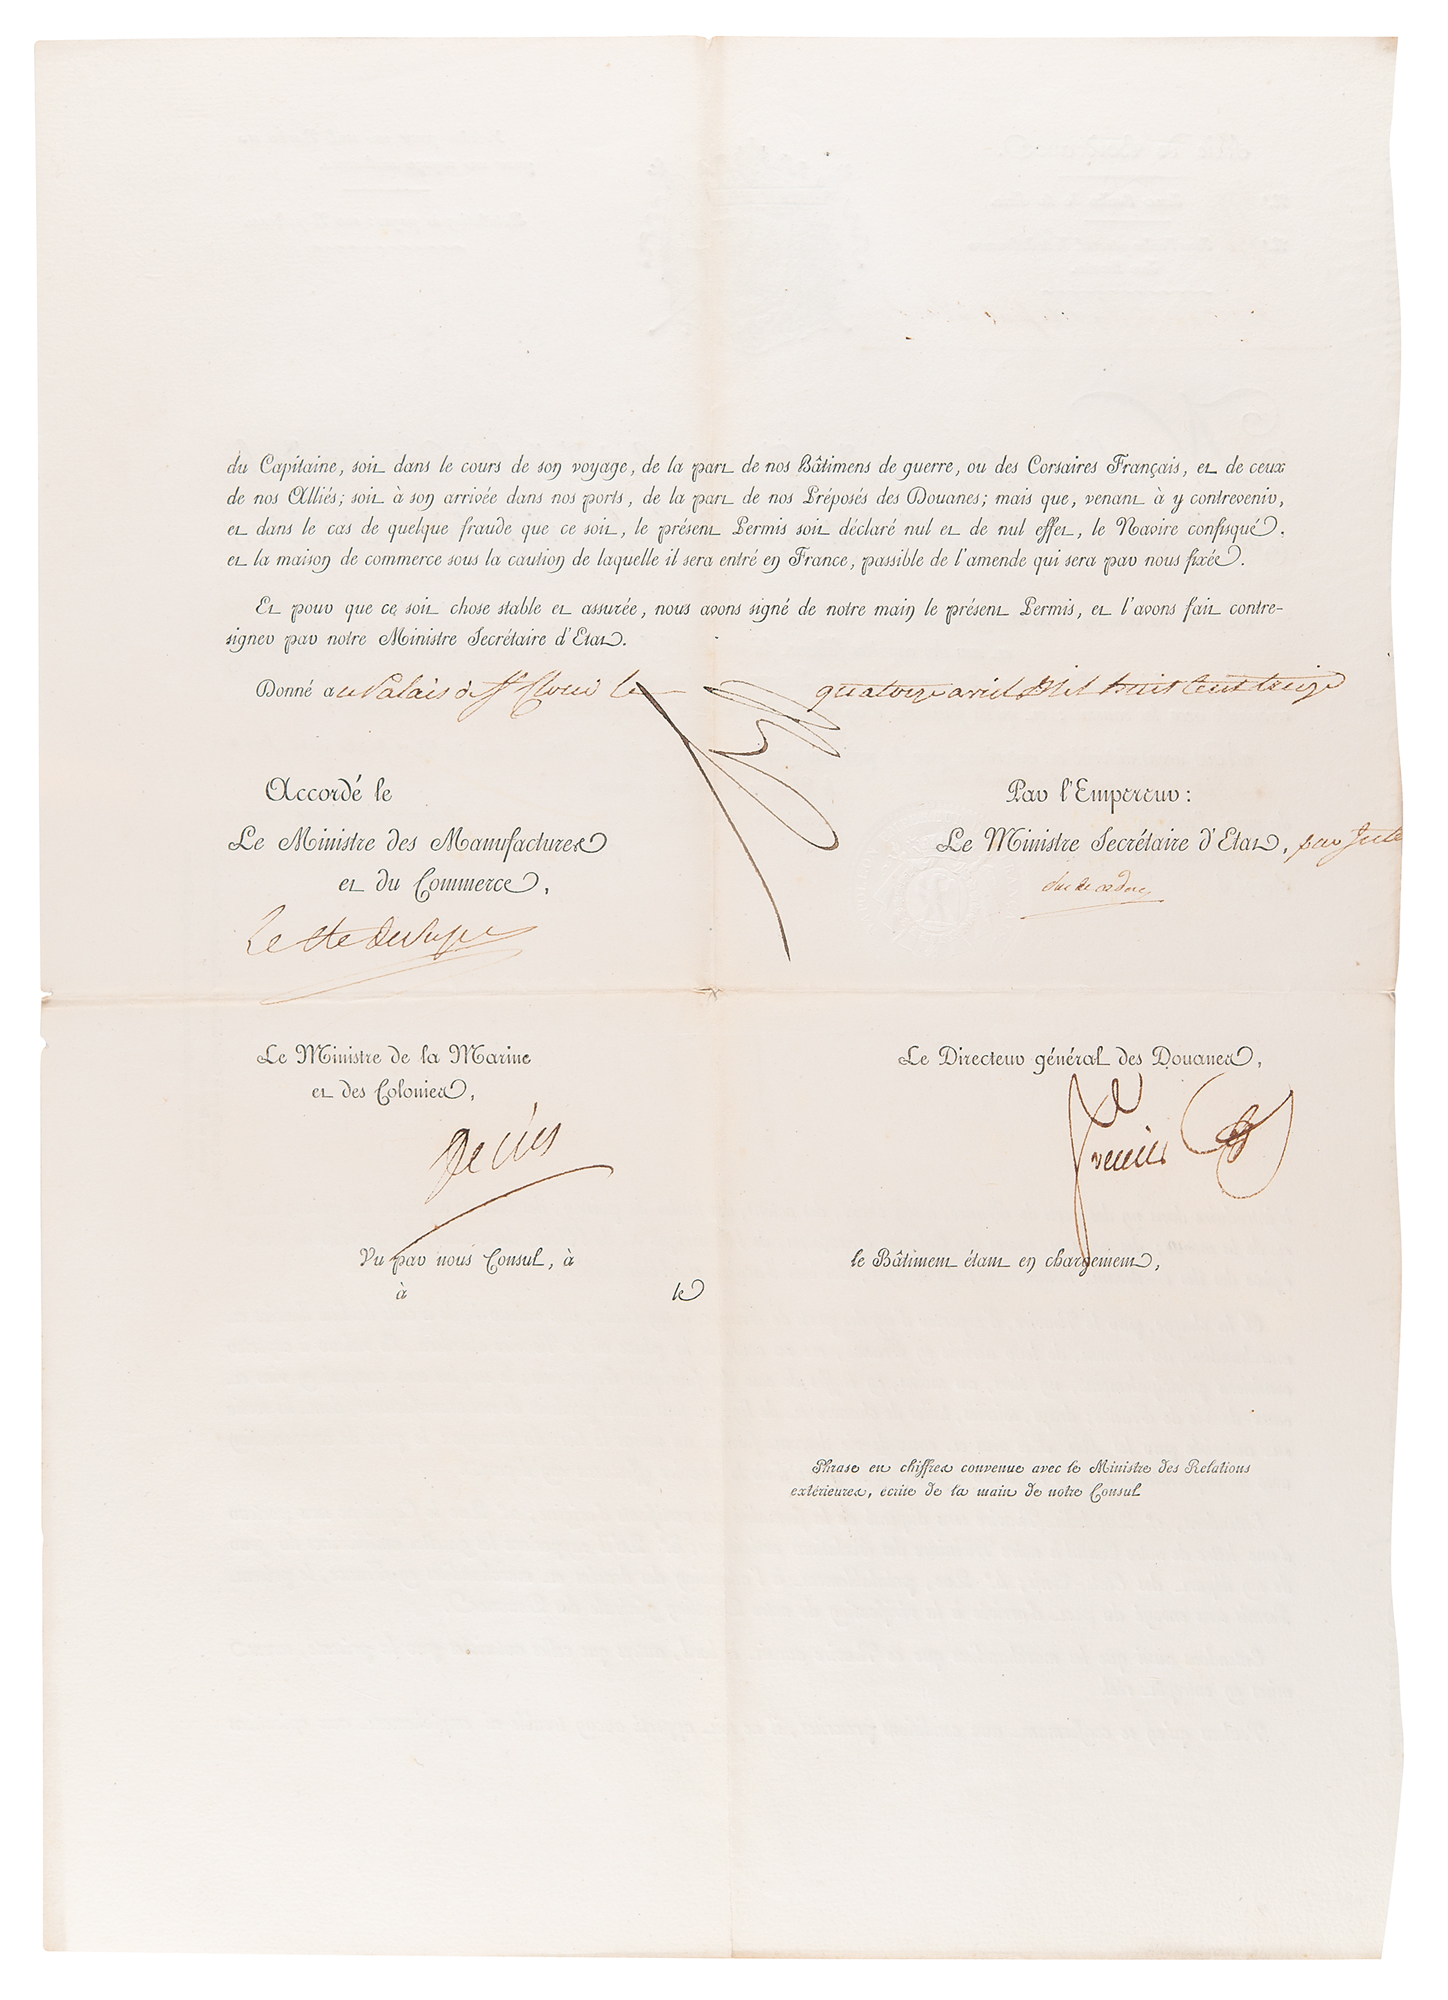 du Capitaine, soit dans le cours de son voyage, de la part de nos Bâtimens de guerre, ou des Corsaires Français, et de ceux
de nos Alliés; soit à son arrivée dans nos ports, de la part de nos Préposés des Douanes; mais que, venant à y contrevenir,
et dans le cas de quelque fraude que ce soit, le présent Permis soit déclaré nul et de nul effet, le Navire confisqué.
et la maison de commerce sous la caution de laquelle il sera entré en France, passible de l'amende qui sera par nous fixée.
Et pour que ce soit chose stable et assurée, nous avons signé de notre main le présent Permis, et l'avons fait contre-
signer par notre Ministre Secrétaire d'Etat.
Donné au Palais de St Cloud le quatorze avril Mil huit cent treize
Accordé le
Par l'Empereur:
Le Ministre des Manufactures
et du Commerce,
Le Ministre Secrétaire d'Etat, par
duc de cadore
Le Cte de Sussy
Le Ministre de la Marine
et des Colonies,
Le Directeur général des Douanes,
Decrès
Ferrier
Vu par nous Consul, à
le Bâtiment étant en chargement,
à le
Phrase en chiffres convenue avec le Ministre des Relations
extérieures, écrite de la main de notre Consul